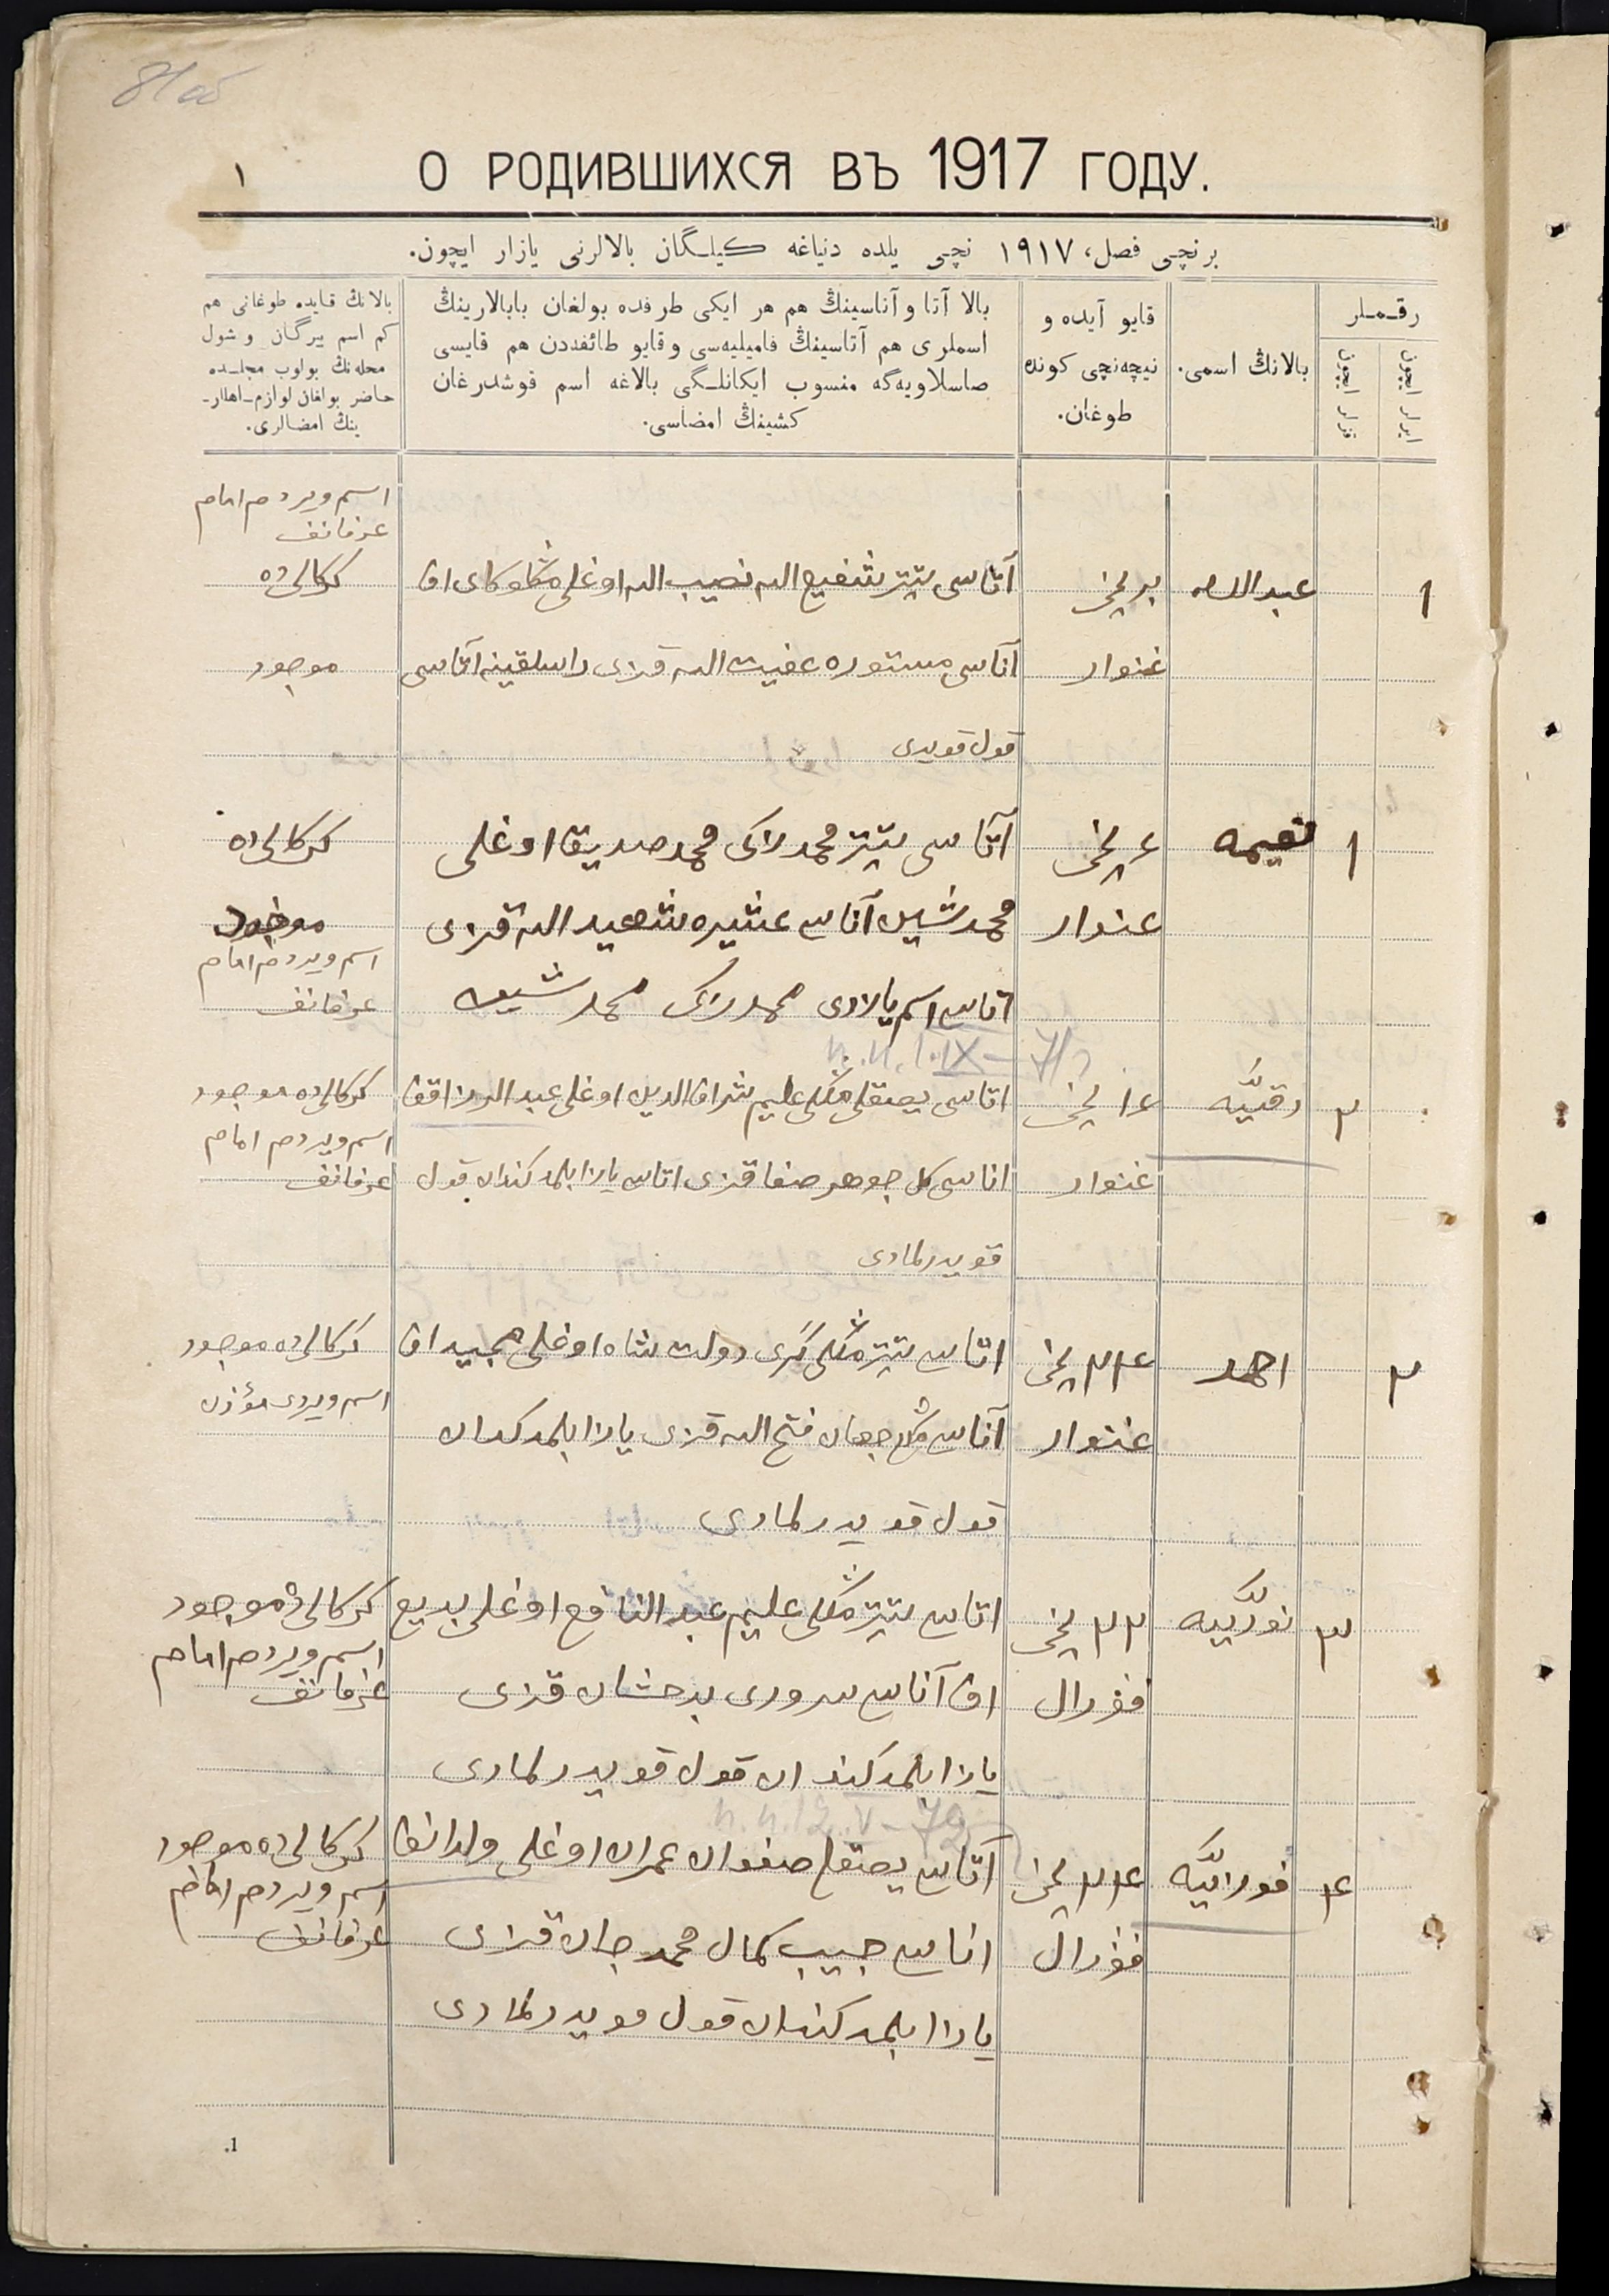 О РОДИВШИХСЯ ВЪ 1917 ГОДУ.
١
برنچی فصل، ١٩١٧ نچی یلده دنیاغه كیلـگان بالالرنی یازار ایچون.
رقـملر
ایرلر ایچون
قزلر ایچون
بالانڭ اسمی.
قایو آیده و
نیچه‌نچی كونده
طوغان.
بالا آتا و آناسینڭ هم هر ایكی طرفده بولغان بابالارینڭ
اسملری هم آتاسینڭ فامیلیه‌سی و قایو طائفه‌دن هم قایسی
صاسلاویه‌گه منسوب ایكانلـگی بالاغه اسم قوشدرغان
كشینڭ امضاسی.
بالانڭ قایده طوغانی هم
كم اسم بیرگان و شول
محله‌نڭ بولوب مجلـده
حاضر بولغان لوازم-اهللر-
ینڭ امضالری.
١
عبدالله
برنچی
غنوار
آتاسی تیتر شفیع الله نصیب الله اوغلی
آناسی مستوره عفیت الله قزی آتاسی
قول قویدی
اسم ویردم امام
عرفانف
كركالی ده
موجود
١
نعیمه
٤ نچی
غنوار
آتاسی تیتر محمد زاكی محمد صدیق اوغلی
محمدشین آناسی عشیره شهید الله قزی
آتاسی اسم یازدی محمد زاكی محمد شین
كركالی ده
موجود
اسم ویردم امام
عرفانف
٢
رقیّه
١٤ نچی
غنوار
اتاسی علیم شرف الدین اوغلی عبد الرزاقف
اناسی گل جوهر صفا قزی اتاسی یازا بلمدكندان قول
قویدرلمادی
كركالی ده موجود
اسم ویردم امام
عرفانف
٢
احمد
٢٤ نچی
غنوار
اتاسی تیتر دولت شاه اوغلی مجیداف
آناسی جهان فتح الله قزی یازا بلمدكندان
قول قویدرلمادی
كركالی ده موجود
اسم ویردی مؤذن
٣
نوریّیه
٢٢ نچی
فورال
اتاسی تیتر علیم عبد النافع اوغلی بدیع
اف آناسی سروری بدخشان قزی
یازا بلمدكندان قول قویدرلمادی
كركالی ده موجود
اسم ویردم امام
عرفانف
٤
فورالیّه
٢٤ نچی
فورال
آتاسی صفوان عمران اوغلی ولدانف
اناسی حبیب كمال محمد جان قزی
یازا بلمدكندان قول قویدرلمادی
كركالی ده موجود
اسم ویردم امام
عرفانف
1.